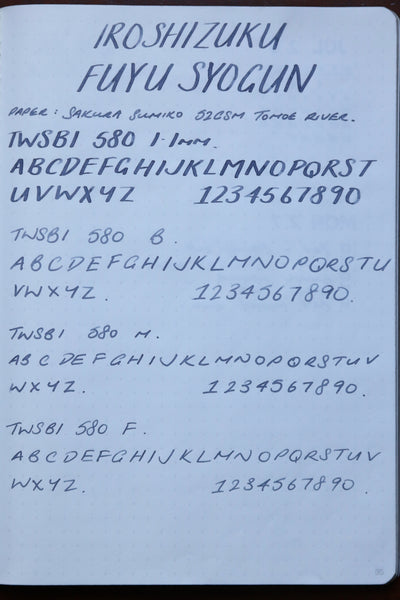 IROSHIZUKU
FUYU SYOGUN
PAPER: SAKURA SUMIKO 52GSM TOMOE RIVER.
TWSBI 580 1.1mm.
ABCDEFGHIJKLMNOPQRST
UVWXYZ 1234567890
TWSBI 580 B.
ABCDEFGHIJKLMNOPQRSTU
VWXYZ. 1234567890.
TWSBI 580 M.
ABCDEFGHIJKLMNOPQRSTUV
WXYZ. 1234567890.
TWSBI 580 F.
ABCDEFGHIJKLMNOPQRSTUV
WXYZ. 1234567890.